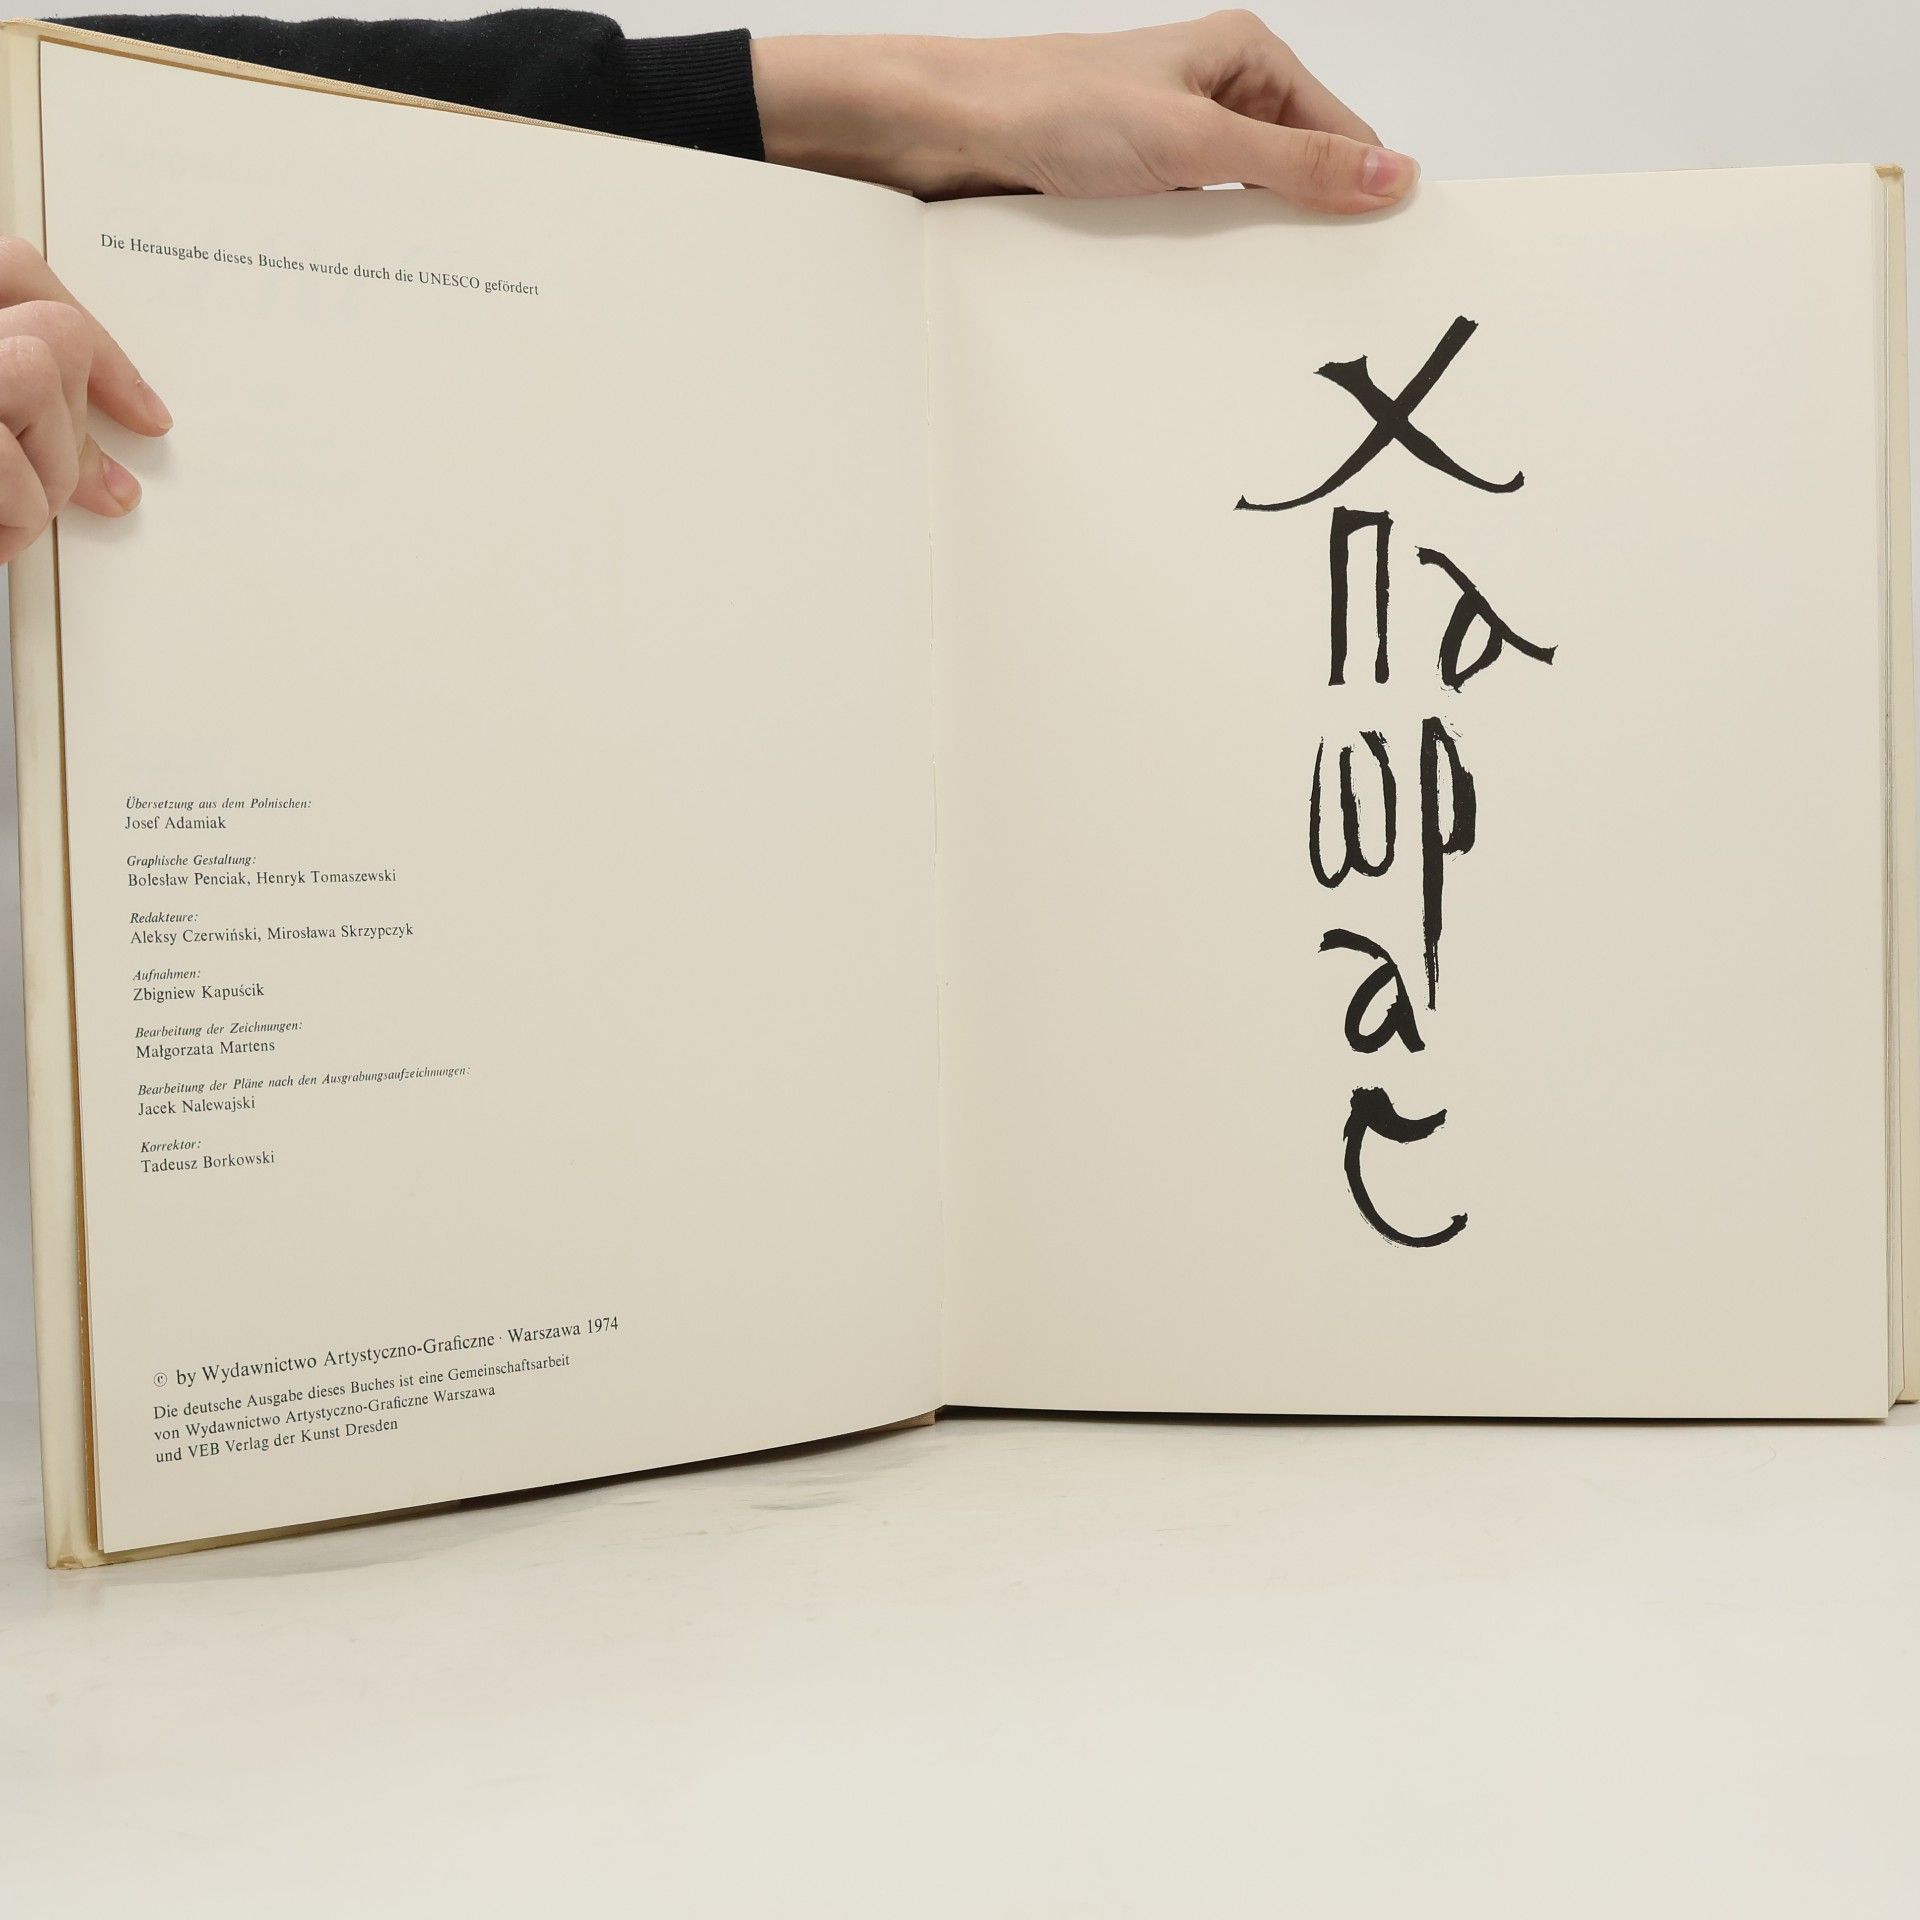 Die Herausgabe dieses Buches wurde durch die UNESCO gefördert
Übersetzung aus dem Polnischen:
Josef Adamiak
Graphische Gestaltung:
Bolesław Penciak, Henryk Tomaszewski
Redakteure:
Aleksy Czerwiński, Mirosława Skrzypczyk
Aufnahmen:
Zbigniew Kapuścik
Bearbeitung der Zeichnungen:
Małgorzata Martens
Bearbeitung der Pläne nach den Ausgrabungsaufzeichnungen:
Jacek Nalewajski
Korrektor:
Tadeusz Borkowski
© by Wydawnictwo Artystyczno-Graficzne · Warszawa 1974
Die deutsche Ausgabe dieses Buches ist eine Gemeinschaftsarbeit
von Wydawnictwo Artystyczno-Graficzne Warszawa
und VEB Verlag der Kunst Dresden
ⲭ
ⲡⲁ
ⲱⲣ
ⲁ
ⲥ